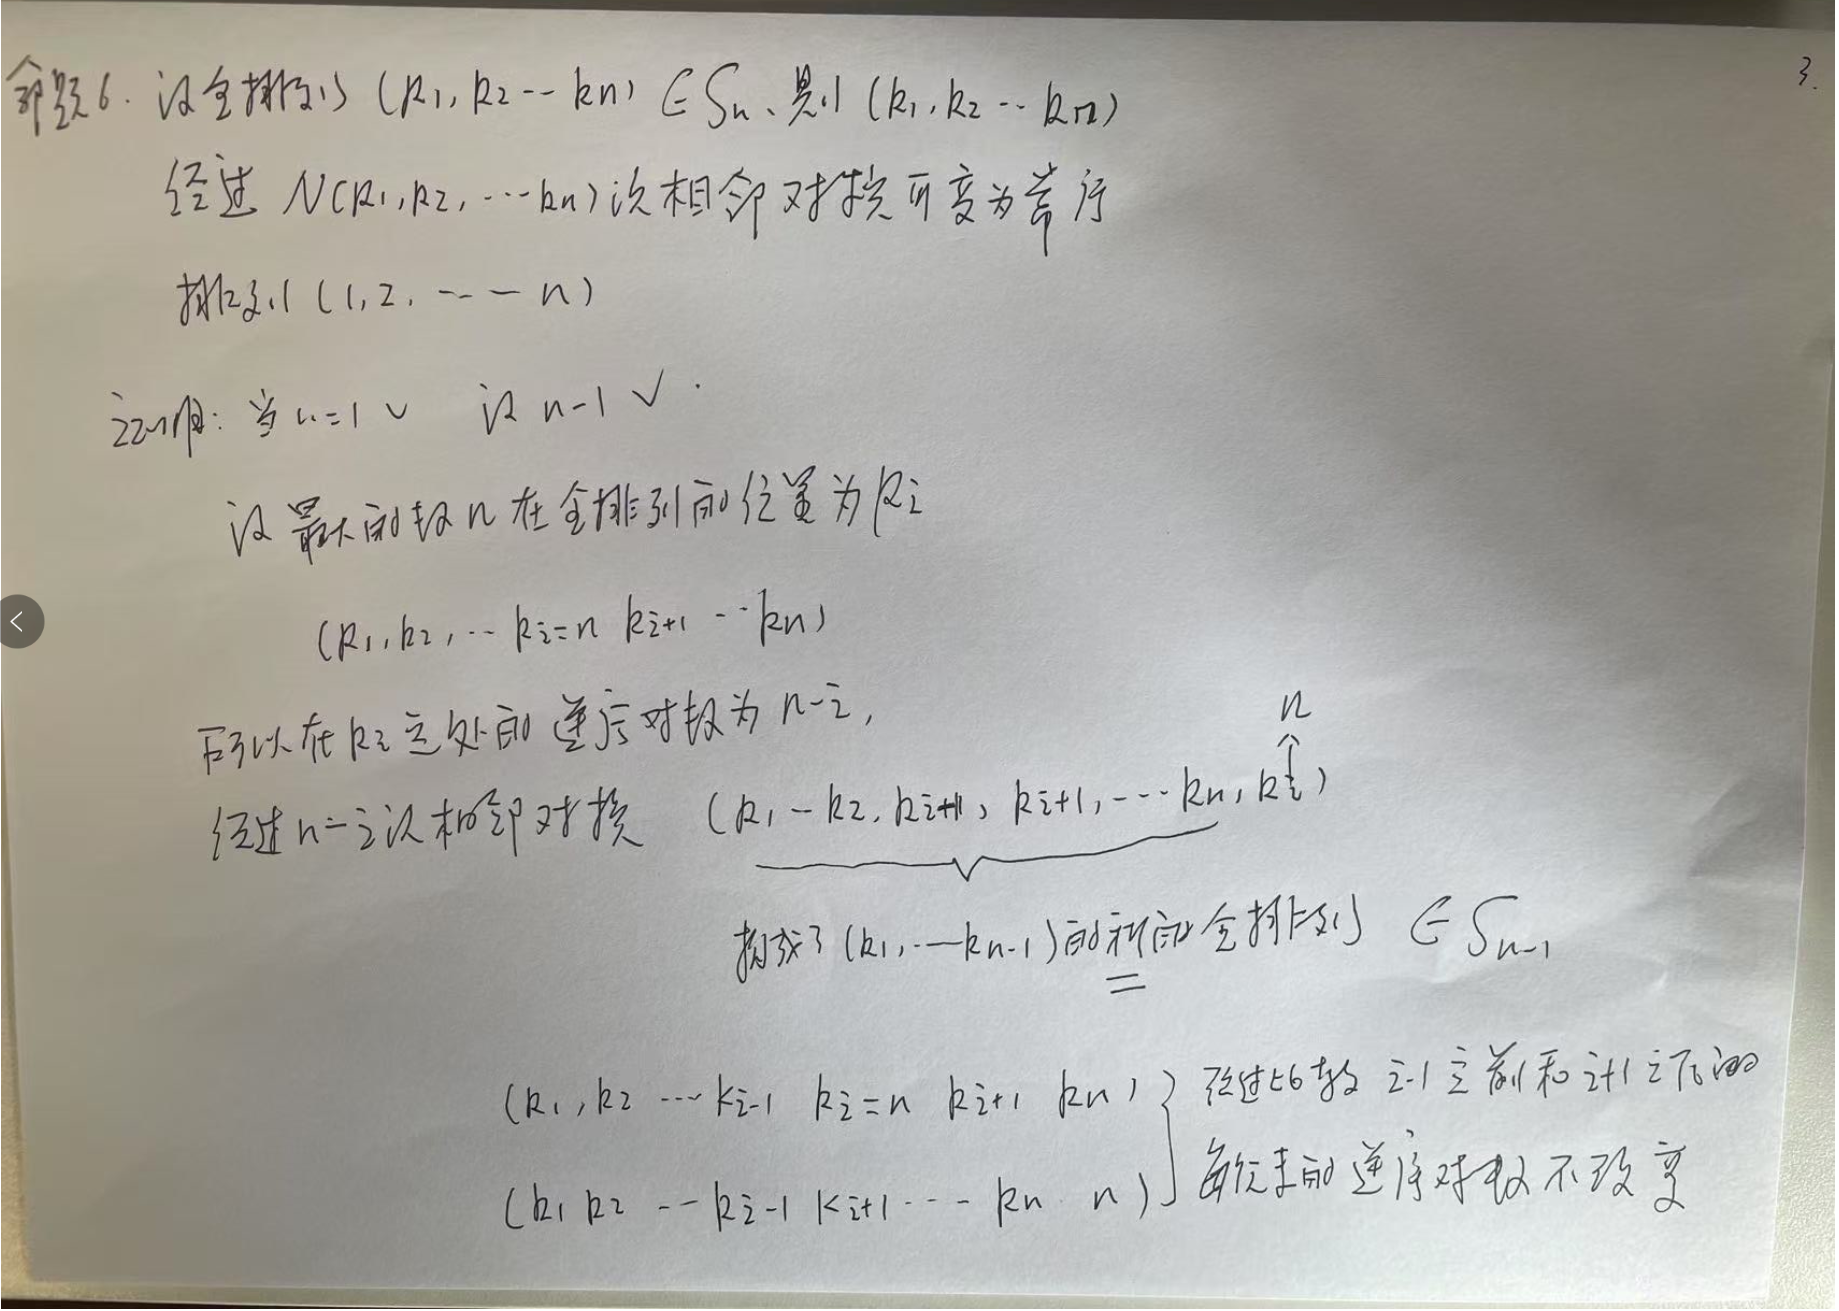 3.
命题6. 设全排列 (k1, k2 -- kn) ∈ Sn、则 (k1, k2 -- kn)
经过 N(k1, k2, --- kn) 次相邻对换可变为常序
排列 (1, 2, --- n)
证明: 当 n=1 ✓ 设 n-1 ✓ .
设最大的数 n 在全排列的位置为 ki
(k1, k2, -- ki=n ki+1 -- kn)
所以在 ki 之处的逆序对数为 n-i,
n
↑
经过 n-i 次相邻对换 (k1 -- k2, ki+1, --- kn, ki)
构成了 (k1, -- kn-1) 的新的全排列 ∈ Sn-1
(k1, k2 --- ki-1 ki=n ki+1 kn) 经过比较 i-1 之前和 i+1 之后的
(k1 k2 -- ki-1 ki+1 --- kn n) 每位素的逆序对数不改变